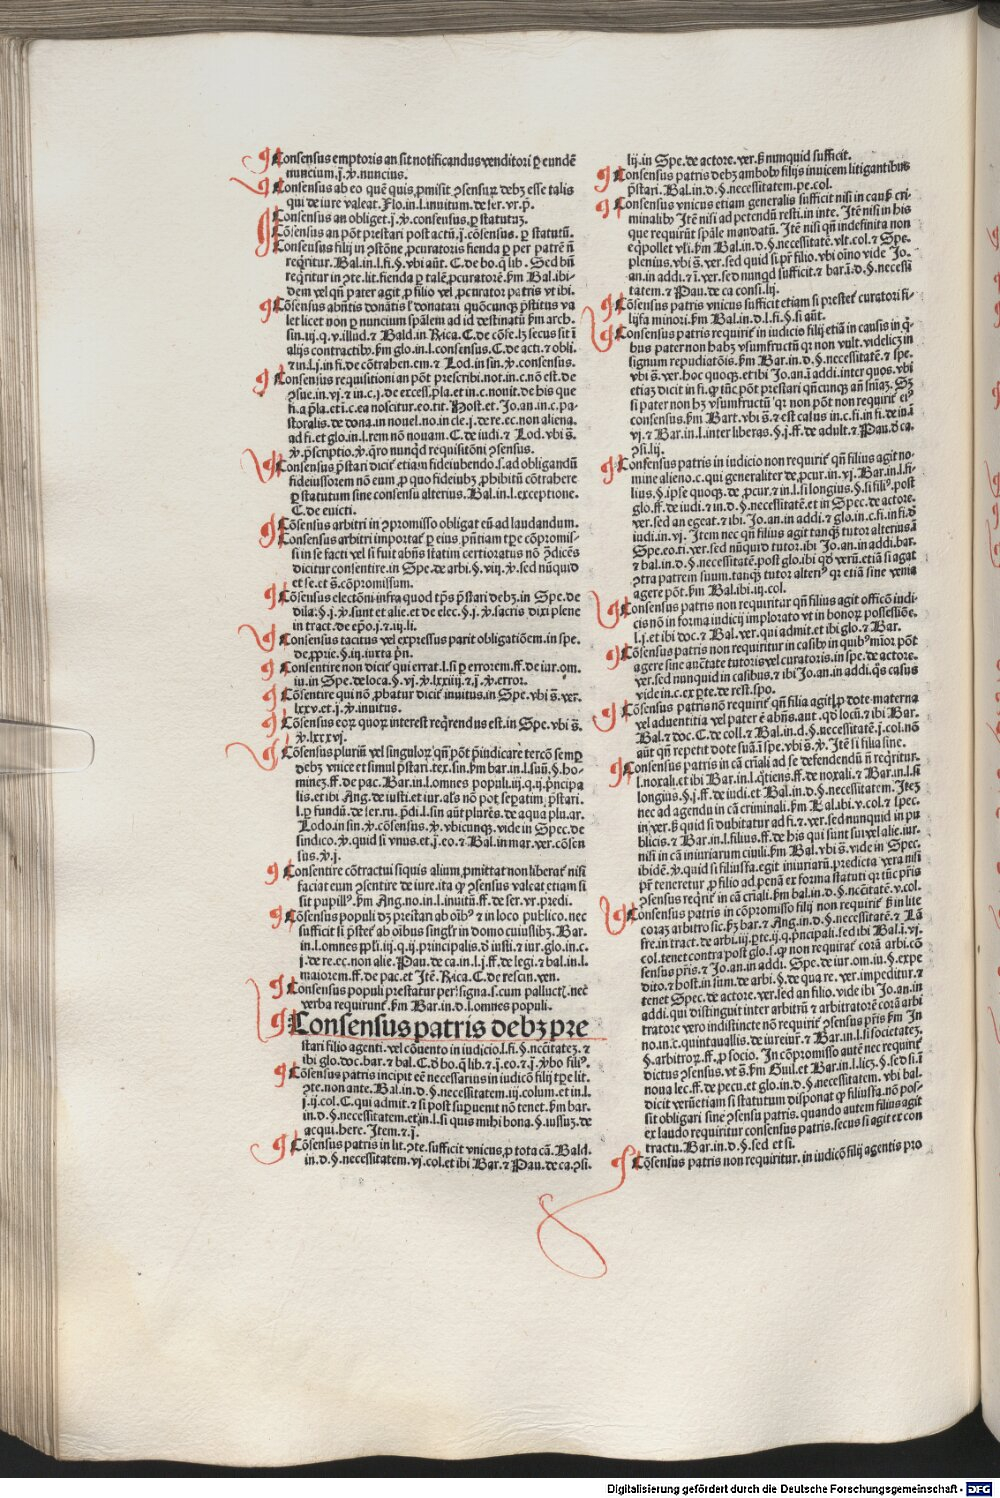 Consensus emptoris an sit notificandus venditori ꝑ eundē
nuncium.j.ꝟ.nuncius.
Consensus ab eo quē quis ꝓmisit ꝯsensuꝝ debꝫ esse talis
qui de iure valeat. Flo.in.l.inuitum.de ser.vr.p̄.
Consensus an obliget.j.ꝟ.consensus.ꝑ statutuꝫ.
Cōsensus an pōt prestari post actū.j.cōsensus.ꝑ statutū.
Consensus filij in ꝯstōne ꝓcuratoris fienda ꝑ per patrē nō
reqͥritur.Bal.in.l.fi.§.vbi aūt.C.de bo.q̄ lib. Sed bn̄
reqͥritur in ꝯte.lit.fienda ꝑ talē ꝓcuratorē.ẜm Bal.ibi-
dem vel qn̄ pater agit ꝓ filio vel ꝓcurator patris vt ibi.
Cōsensus abn̄tis donātis ł donatari quōcunqꝫ p̄stitus va
let licet non ꝑ nuncium spālem ad id destinatū ẜm arch.
Consensus requisitioni an pōt prescribi.not.in.c.nō est.de
fi.a p̄la.et i.c.ea noscitur.eo.tit. Host.et Jo.an.in c.pa-
storalis.de dona.in nouel.no.in cle.j.de re.ec.non aliena.
ad fi.et glo.in.l.rem nō nouam.C.de iudi.⁊ Lod.vbi s̄.
ꝟ.p̄scriptio.ꝟ.qͥro nunqͥd requisitōni ꝯsensus.
Consensus p̄stari dicit᷑ etiam fideiubendo.s.ad obligandū
fideiussorem nō eum ꝓ quo fideiubꝫ ꝓhibitū cōtrahere
ꝑ statutum sine consensu alterius.Bal.in.l.exceptione.
C.de euicti.
Cōsensus arbitri in ꝯpromisso obligat eū ad laudandum.
Consensus arbitri importat ꝑ eius p̄ntiam tp̄e cōpromis-
si in se facti vel si fuit abn̄s statim certioratus nō ꝯdicēs
dicitur consentire.in Spe.de arbi.§.viij.ꝟ.sed nūquid
et se.et s̄.cōpromissum.
Cōsensus electōni infra quod tp̄s p̄stari debꝫ.in Spe.de
dila.§.j.ꝟ.sunt et alie.et de elec.§.j.ꝟ.sacris dixi plene
in tract.de ep̄o.j.⁊ iij.li.
Consensus tacitus vel expressus parit obligatiōem.in spe.
de ꝓprie.§.iij.iuxta p̄n.
Consentire non dicit᷑ qui errat.l.si ꝑ errorem.ff.de iur.om.
iu.in Spe.de loca.§.vj.ꝟ.lxxiiij.⁊ j.ꝟ.error.
Cōsentire qui nō ꝓbatur dicit᷑ inuitus.in Spe.vbi s̄.ver.
lxxv.et.j.ꝟ.inuitus.
Cōsensus eoꝝ quoꝝ interest reqͥrendus est.in Spe.vbi s̄.
ꝟ.lxxxvj.
Cōsensus pluriū vel singuloꝝ qn̄ pōt p̄iudicare tercō semꝑ
debꝫ vnice et simul p̄stari.tex.sin.ẜm bar.in.l.suū.§.ho-
mineꝫ.ff.de pac.Bar.in.l.omnes populi.iij.q.ij.pͥncipa
lis.et ibi Ang.de iusti.et iur.als nō pōt seꝑatim p̄stari.
l.ꝑ fundū.de ser.ru. p̄di.l.sin aūt plures.de aqua plu.ar.
Lodo.in sin.ꝟ.cōsensus.ꝟ.vbicunqꝫ.vide in Spec.de
sindico.ꝟ.quid si vnus.et.j.eo.⁊ Bal.in mar.ver.cōsen
sus.ꝟ.j.
Consentire cōtractui si quis alium ꝓmittat non liberat᷑ nisi
faciat eum ꝯsentire de iure.ita qͩ ꝯsensus valeat etiam si
sit pupillꝰ.ẜm Ang.no.in.l.inuitū.ff.de ser.vr.predi.
Cōsensus populi dꝫ prestari ab oībꝰ ⁊ in loco publico.nec
sufficit si p̄stet᷑ ab oībus singlr̄ in domo cuiuslibꝫ.Bar.
in.l.omnes ppl̄i.iij.q.ij.principalis.d̄ iusti.⁊ iur.glo.in c.
j.de re.ec.non alie.Pau.de ca.in.l.j.ff.de legi.⁊ bal.in.l.
maiorem.ff.de pac.et Itē.Rica.C.de rescin.ven.
Consensus populi prestatur per signa.s.cum palluctꝫ.nec
verba requirunt᷑.ẜm Bar.in.d.l.omnes populi.
Consensus patris debꝫ pre
stari filio agenti.vel cōuento in iudicio.l.fi.§.ncc̄itateꝫ.⁊
ibi glo.doc.bar.⁊ bal.C.d̄ bo.q̄ lib.⁊.j.eo.⁊.j.ꝟbo filiꝰ.
Cōsensus patris incipit eē necessarius in iudicō filij tp̄e lit.
ꝯte.non ante.Bal.in.d.§.necessitatem.iij.colum.et in.l.
j.ij.col.C.qui admit.⁊ si post suꝑuenit nō tenet.ẜm bar.
in.d.§.necessitatem.et in.l.si quis mihi bona.§.iussuꝫ.de
acqui.here.Item.⁊.j.
Cōsensus patris in lit.ꝯte.sufficit vnicus ꝓ tota cā.Bald.
in.d.§.necessitatem.vj.col.et ibi Bar.⁊ Pau.de ca.ꝯsi.
lij.in Spe.de actore.ver.ẜ nunquid sufficit.
Consensus patris debꝫ ambobꝰ filijs inuicem litigantibꝰ
p̄stari.Bal.in.d.§.necessitatem.pe.col.
Consensus vnicus etiam generalis sufficit nisi in causꝭ cri-
minalibꝰ Itē nisi ad petendū resti.in inte. Itē nisi in his
que requirūt spāle mandatū. Itē nisi qn̄ indefinita non
eqͥpollet vl̓i.ẜm Bal.in.d.§.necessitatē.vlt.col.⁊ Spe.
plenius.vbi s̄.ver.sed quid si pr̄ filio.vbi oīno vide Jo.
an.in addi.⁊ i.ver.sed nunqͥd sufficit.⁊ bar.ī.d.§.necessi
tatem.⁊ Pau.de ca consi.lij.
Cōsensus patris vnicus sufficit etiam si prestet᷑ curatori fi-
lij sꝫ minori.ẜm Bal.in.d.l.fi.§.si aūt.
Consensus patris requirit᷑ in iudicio filij etiā in causis in qͥ-
bus pater non habꝫ vsumfructū qꝛ non vult.videlicꝫ in
signum repudiatōis.ẜm Bar.in.d.§.necessitatē.⁊ spe.
vbi s̄.ver.hoc quoqꝫ.et ibi Jo.an.ī addi.inter quos.vbi
etiaꝫ dicit in fi.qͩ tūc pōt prestari qn̄cunqꝫ an̄ sn̄iaꝫ. Sꝫ
si pater non hꝫ vsumfructū qꝛ non pōt non requirit᷑ eiꝰ
consensus.ẜm Bart.vbi s̄.⁊ est casus in.c.fi.in fi.de iu.ī
vj.⁊ Bar.in.l.inter liberas.§.j.ff.de adult.⁊ Pau.d̄ ca.
ꝯsi.lij.
Consensus patris in iudicio non requirit᷑ qn̄ filius agit no-
mine alieno.c.qui generaliter de ꝓcur.in.vj.Bar.in.l.fi-
lius.§.ipse quoqꝫ.de ꝓcur.⁊ in.l.si longius.§.si filiꝰ.post
glo.ff.de iudi.⁊ in.d.§.necessitatē.et in Spec.de actore.
ver.sed an egeat.⁊ ibi Jo.an.in addi.⁊ glo.in c.fi.in fi.d̄
iudi.in.vj. Item nec qn̄ filius agit tanqꝫ tutor alteriꝰ.ī
Spe.eo.ti.ver.sed nūquid tutor.ibi Jo.an.in addi.bar.
⁊ bal.in.d.§.necessitatē.post glo.ibi qͩ verū.etiā si agat
ꝯtra patrem suum.tanqꝫ tutor alteriꝰ qꝛ etiā sine venia
agere pōt.ẜm Bal.ibi.iij.col.
Consensus patris non requiritur qn̄ filius agit officō iudi-
cis nō in forma iudicij implorato vt in bonoꝝ possessiōe.
l.j.et ibi doc.⁊ Bal.ver.qui admit.et ibi glo.⁊ Bar.
Cōsensus patris non requiritur in casibꝰ in quibꝰ mior pōt
agere sine auc̄tate tutoris vel curatoris.in spe.de actore.
ver.sed nunquid in casibus.⁊ ibi Jo.an.in addi.qͦs casus
vide in.c.ex ꝑte.de rest.spo.
Cōsensus patris nō requirit᷑ qn̄ filia agit ꝓ dote materna
vel aduenticia vel pater ē abn̄s.aut.qͩ locū.⁊ ibi Bar.
Bal.⁊ doc.C.de coll.⁊ Bal.in.d.§.necessitatē.j.col.nō
aūt qn̄ repetit dotē suā.ī spe.vbi s̄.ꝟ.Itē si filia sine.
Consensus patris in cā criali ad se defendendū n̄ reqͥritur.
l.noxali.et ibi Bar.in.l.qͦtiens.ff.de noxali.⁊ Bar.in.l.si
longius.§.j.ff.de iudi.et Bal.in.d.§.necessitatem. Iteꝫ
nec ad agendū in cā criminali.ẜm Bal.ibi.v.col.⁊ spec.
in ver.ẜ quid si dubitatur ad fi.⁊ ver.sed nunquid in pu
blicis.⁊ Bar.in.l.filius.ff.de his qui sunt sui vel alie.iur.
nisi in cā iniuriarum ciuili.ẜm Bal.vbi s̄.vide in Spec.
ibidē.ꝟ.quid si filiusfa.egit iniuriarū.predicta vera nisi
pr̄ teneretur ꝓ filio ad penā ex forma statuti qꝛ tūc pr̄is
ꝯsensus reqͥrit᷑ in cā criali.ẜm bal.in.d.§.nc̄citatē.v.col.
Consensus patris in cōpromisso filij non requirit᷑ ẜ in lite
coraꝫ arbitro sic.ẜꝫ bar.⁊ Ang.in.d.§.necessitatē.⁊ Lā
fre.in tract.de arbi.iij.ꝑte.ij.q.pͥncipali.sed ibi Bal.ī.vj.
col.tenet contra post glo.s.qͩ non requirat᷑ corā arbi.cō
sensus pr̄is.⁊ Jo.an.in addi. Spe.de iur.om.iu.§.expe
dito.⁊ host.in sum.de arbi.§.de qua re.ver.impeditur.⁊
tenet Spec.de actore.ver.sed an filio.vide ibi Jo.an.in
addi.qui distinguit inter arbitrū ⁊ arbitratorē corā arbi
tratore vero indistincte nō requirit᷑ ꝯsensus pr̄is ẜm In
no.in.c.quintauallis.de iureiur.⁊ Bar.in.l.si societateꝫ.
§.arbitroꝝ.ff.ꝓ socio. In cōpromisso autē nec requirit᷑
dictus ꝯsensus.vt s̄.ẜm Guil.et Bar.in.l.licꝫ.§.sed si.ī
noua lec.ff.de pecu.et glo.in.d.§.necessitatem.vbi bal.
dicit verū etiam si statutum disponat qͩ filiusfa.nō pos-
sit obligari sine ꝯsensu patris.quando autem filius agit
ex laudo requiritur consensus patris.secus si agit ex con
tractu.Bar.in.d.§.sed et si.
Cōsensus patris non requiritur.in iudicō filij agentis pro
Digitalisierung gefördert durch die Deutsche Forschungsgemeinschaft - DFG